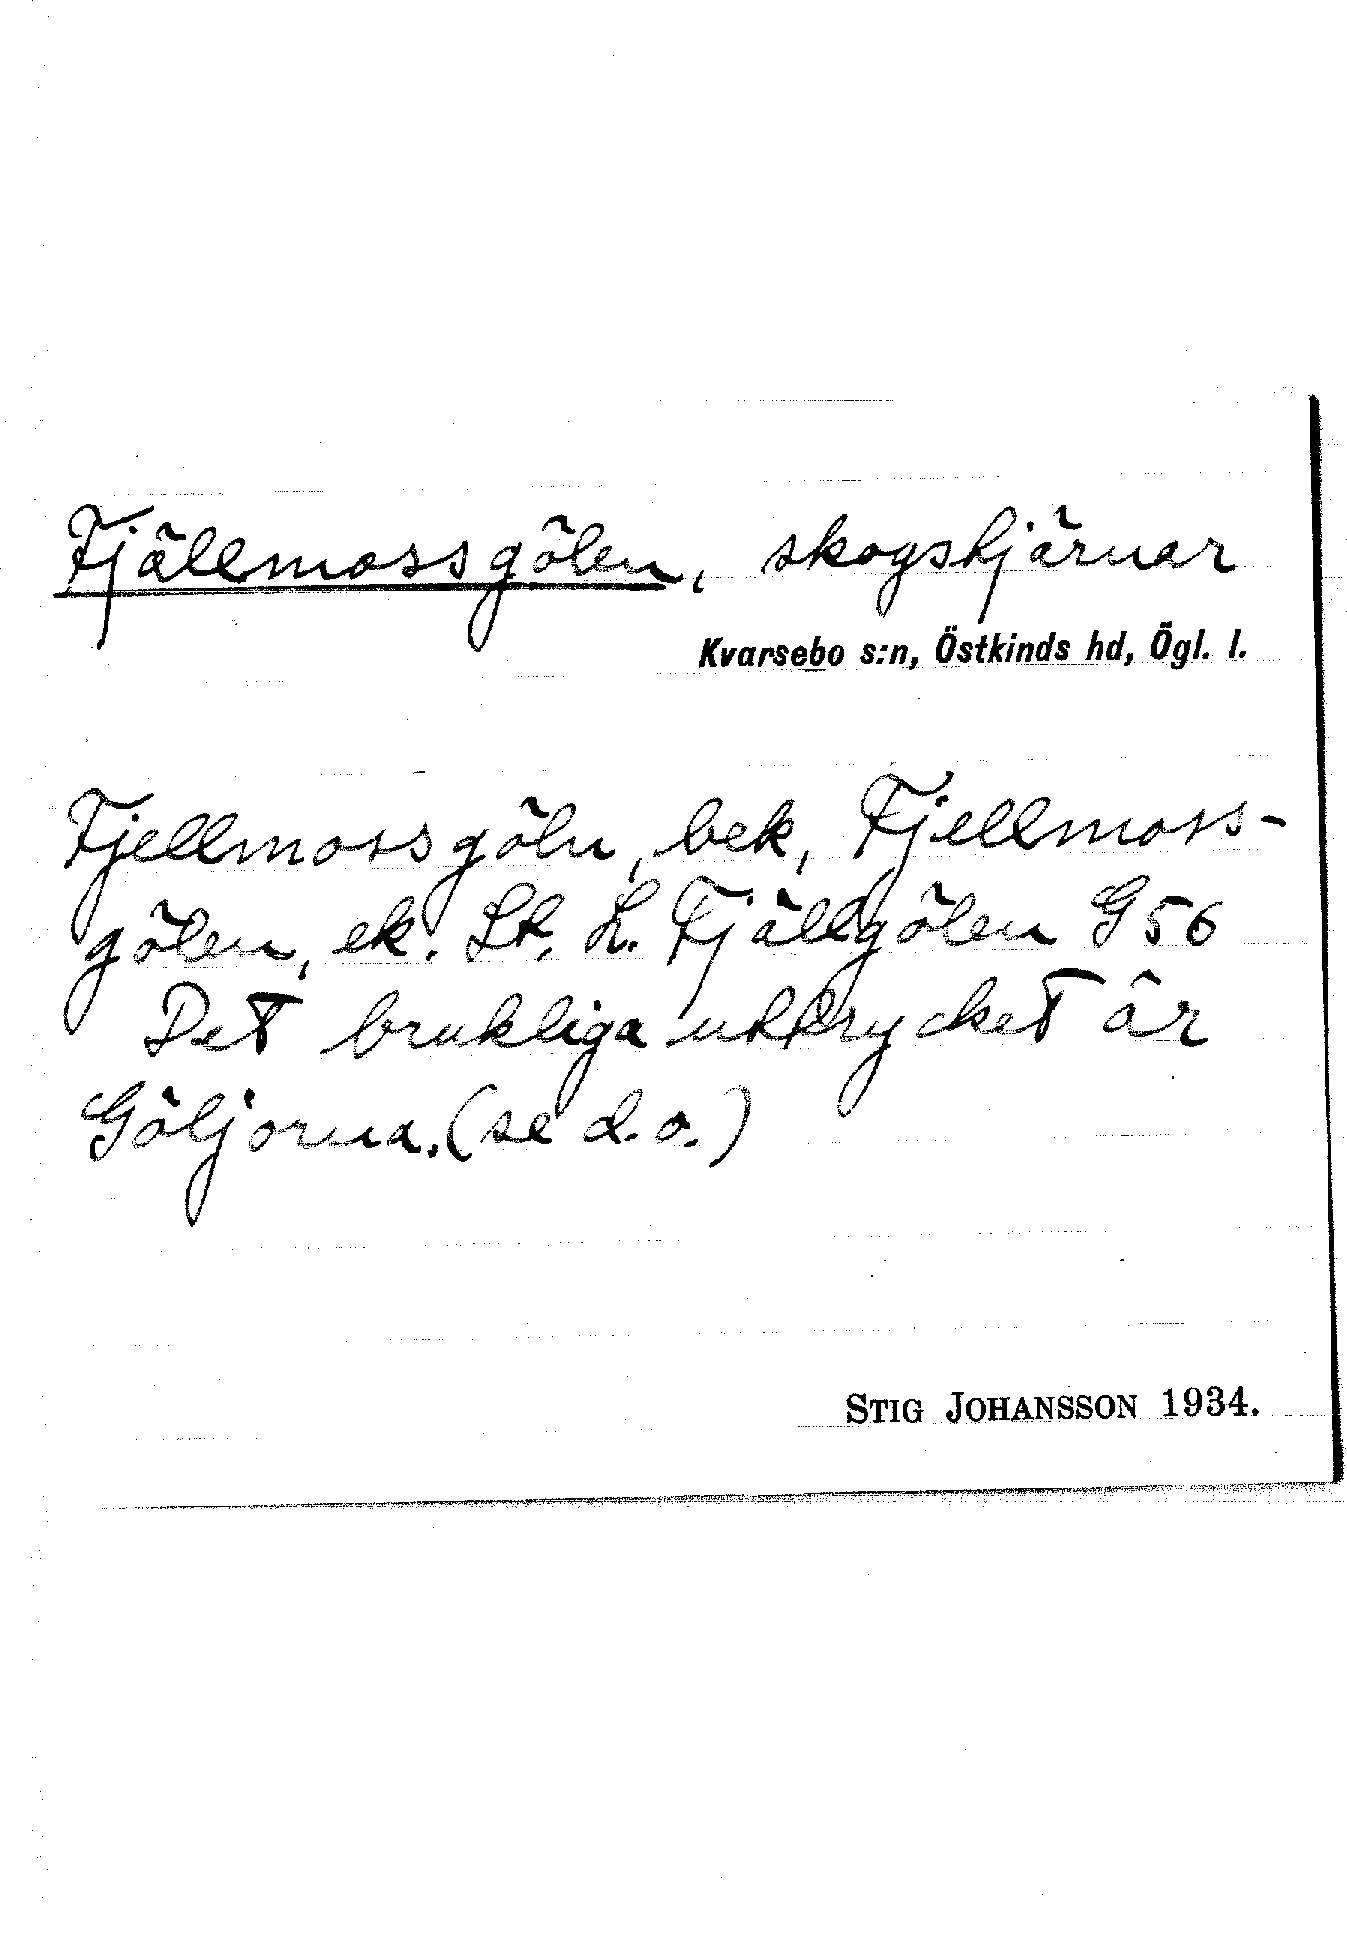 Fjällmossgölen, skogstjärnar
Kvarsebo s:n, Östkinds hd, Ögl. l.
Fjellmossgöln, bek, Fjellmoss-
gölen, ek. Lt. L. Fjällgölen G 56
Det brukliga uttrycket är
Göljorna. (se d.o.)
STIG JOHANSSON 1934.